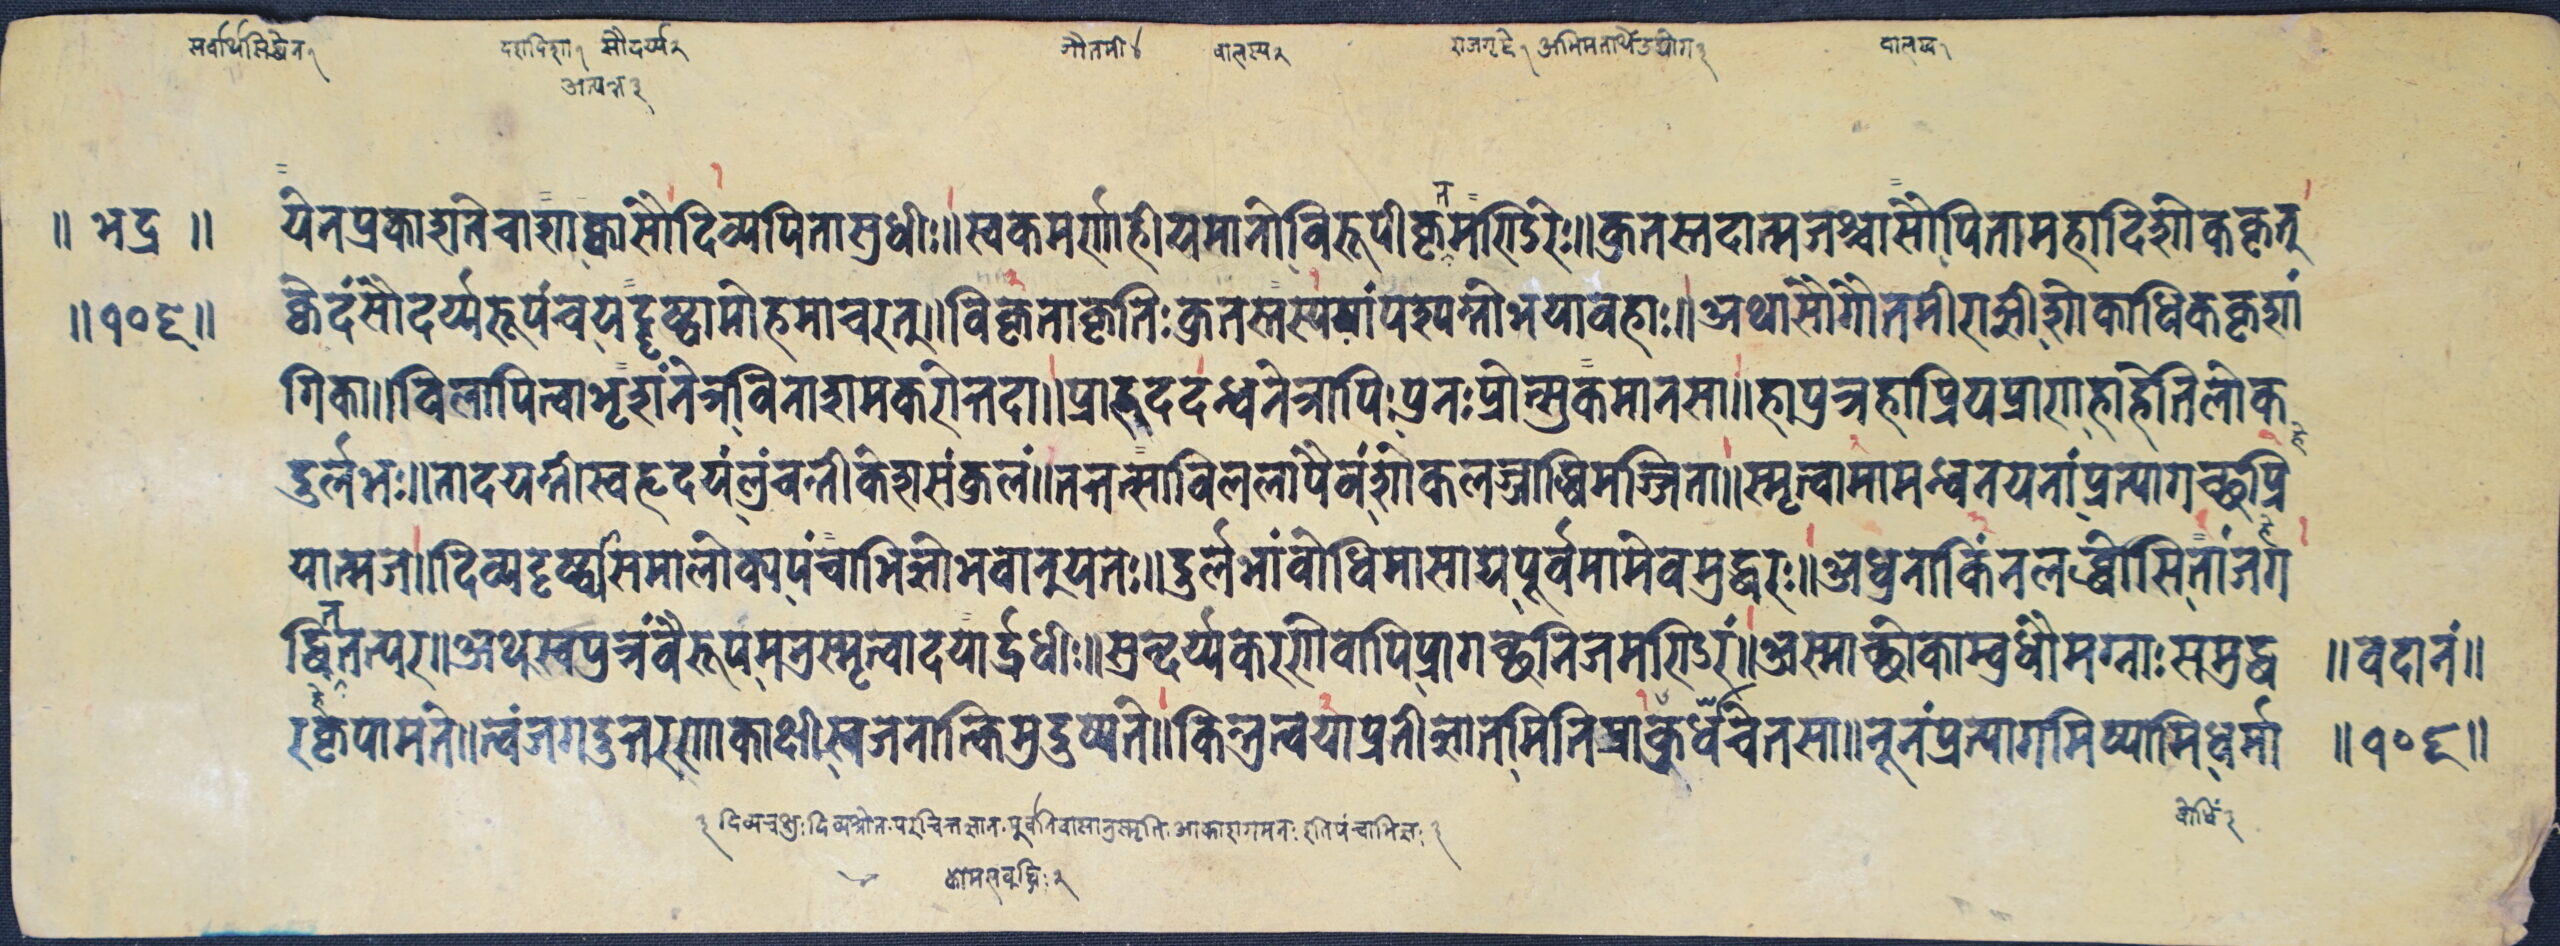 सर्वार्थसिद्धेन १ दशदिशा १ सौदर्य्य २ गौतमी ४ वालस्य २ राजगृहे १ अभिमतार्थेउद्योग ३ वालख १
अत्यन्त ३
॥ भद्र ॥ येनप्रकाशतेचाशाक्वासौदिव्यपितासुधीः॥स्वकमर्णाहीयमानोविरूपीकृतमण्डिरः॥कुतस्तदात्मजश्चासौपितामहादिशोकककृतु
॥१०६॥ क्वेदंसौदर्य्यरूपंचयद्दृष्ट्वामोहमाचरतु॥विकृताकृतिःकुतस्तस्यपश्यन्तीभयावहाः॥अथासौगौतमीराज्ञीशोकाधिककृशां
गिका॥विलापित्वाभृशंनेत्रविनाशमकरोत्तदा॥प्राहददन्धनेत्रापिपुनःप्रोत्सुकमानसा॥हापुत्रहाप्रियप्राणहाहेतिलोक
दुर्लभः॥तादयन्तीस्वहृदयंलुंचन्तीकेशसंकुलं॥ततत्साविललापैवंशोकलज्जाब्धिमज्जिता॥स्मृत्वामामन्धनयनांप्रत्यागच्छप्रि
यात्मज॥दिव्यदृष्ट्यासमालोक्यपंचाभिज्ञोभवानुयतेः॥दुर्लभांवोधिमासाद्यपूर्वमामेवमुद्धरः॥अधुनाकिंनलब्धोसितांजग
द्धिततत्पर॥अथस्वपुत्रंवैरूपमनुस्मृत्वादयार्द्रधीः॥सुन्दर्य्यकरणोवापिप्रागच्छनिजमण्डिरं॥अस्माच्छोकाम्बुधौमग्नाःसमुद्ध ॥वदानं॥
रकृपामते॥त्वंजगदुत्तरणाकाक्षीस्वजनात्किमुदुष्यते॥किन्तुत्वयाप्रतीज्ञातमितिप्राक्चेतसा॥नूनंप्रत्यागमिष्यामिधर्मा ॥१०६॥
३ दिव्यचक्षुःदिव्यश्रोत्र.परचित्तज्ञान.पूर्वनिवासानुस्मृति.आकाशगमनःइतिपंचाभिज्ञः३ वोधिं३
कोमलवुद्धिः२